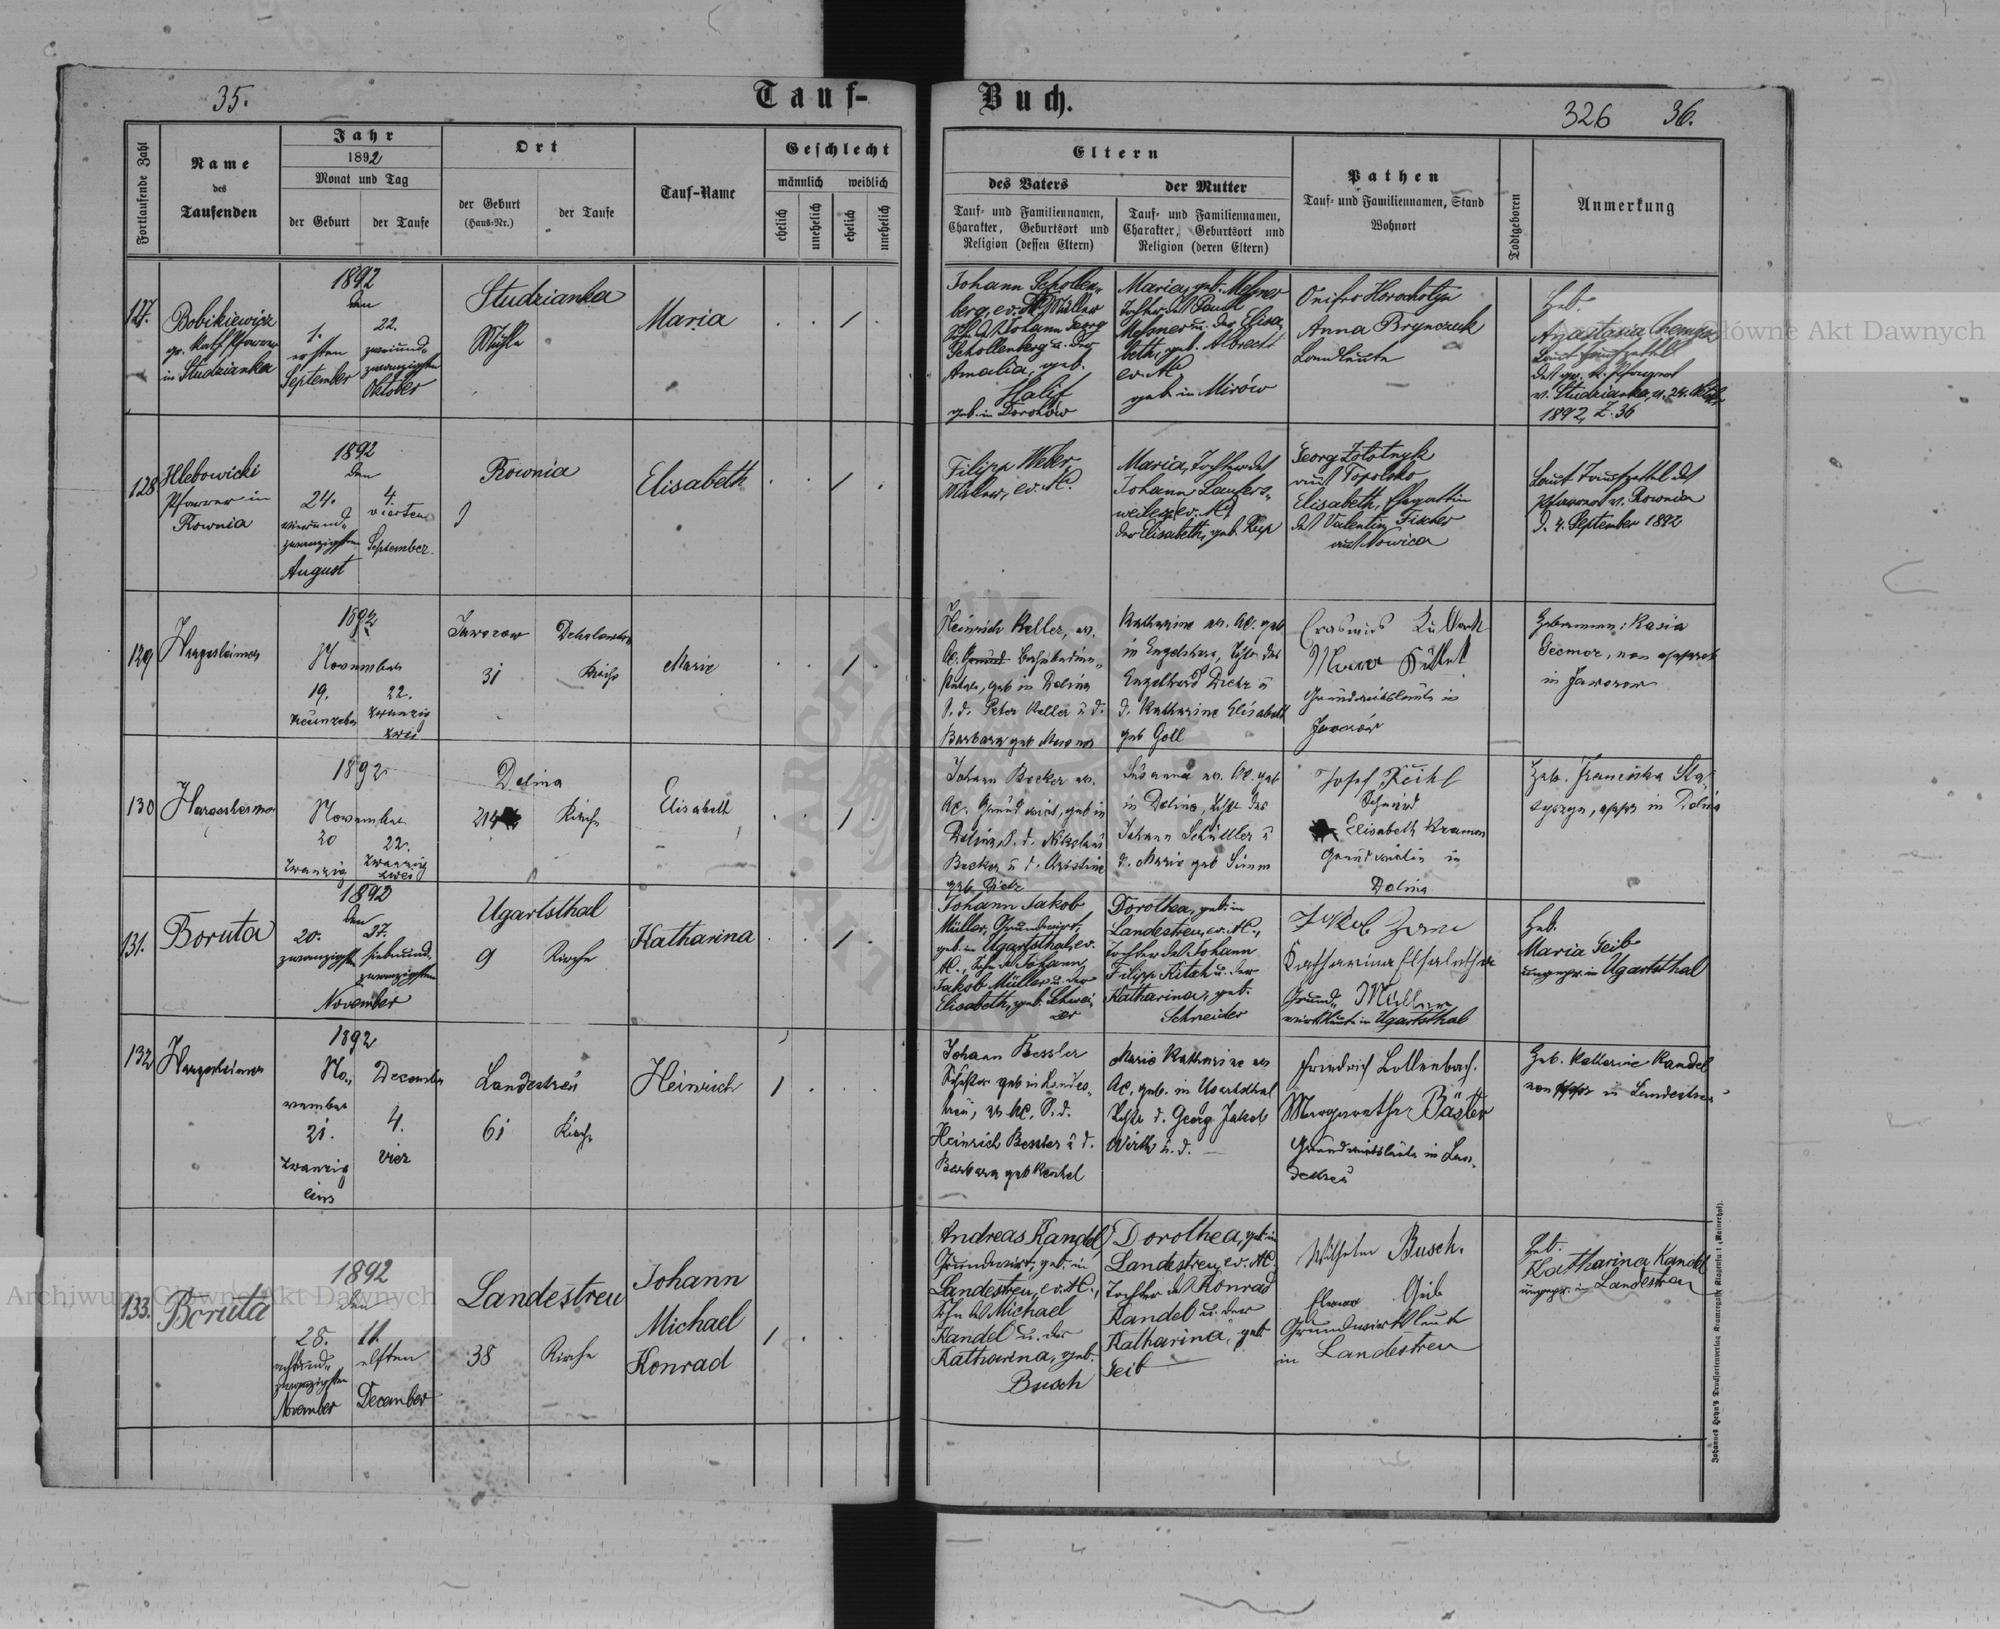 35.
Tauf-
Buch.
326 36.
Fortlaufende Zahl
Name
des
Taufenden
Jahr
1892
Monat und Tag
der Geburt
der Taufe
Ort
der Geburt
(Haus-Nr.)
der Taufe
Tauf-Name
Geschlecht
männlich weiblich
ehelich
unehelich
ehelich
unehelich
Eltern
des Vaters
Tauf- und Familiennamen,
Charakter, Geburtsort und
Religion (dessen Eltern)
der Mutter
Tauf- und Familiennamen,
Charakter, Geburtsort und
Religion (deren Eltern)
Pathen
Tauf- und Familiennamen, Stand
Wohnort
Todtgeboren
Anmerkung
127.
Bobikiewicz
gr. kath Pfarrer
in Studzianka
1892
den
1.
ersten
September
22.
zweiund-
zwanzigsten
Oktober
Studzianka
Mühle
Maria
Johann Schollen-
berg, ev. AC, Müller
Sohn des Johann Georg
Schollenberg u. der
Amalia, geb.
geb. in
Maria, geb. Metzner
Tochter des Paul
Metzner u. der Elisa-
beth, geb. Albrecht
ev. AC,
geb in Mirów
Onifer
Anna Brynczuk
Landleute
Heb.
Anastasia
Laut Taufzettel
des gr. k. Pfarrers
v. Studzianka, v. 24. Oktob.
1892, Z. 36
128
Hlebowicki
Pfarrer in
Rownia
1892
den
24.
vierund-
zwanzigsten
August
4.
vierten
September.
Rownia
Elisabeth
Filipp Weber,
Müller, ev. AC.
Maria, Tochter des
Johann Laufers-
weiler, ev. AC,
der Elisabeth, geb. Rup
Georg Zototnyk
aus Topolsko
Elisabeth, Ehegattin
des Valentin Fischer
aus Nowica
Laut Taufzettel des
Pfarrers v. Rownia
d. 4. September 1892
129
Hargesheimer
1892
November
19.
neunzehn
22.
zwanzig
zwei
Jaworow
31
Kirche
Marie
Heinrich Keller, ev.
geb in Dolina
S. d. Peter Keller u d.
Barbara geb
Katharine ev. AC. geb
in Engelsberg, Tcht. des
Engelhard Dietz u
d. Katharine Elisabeth
geb Goll
Grundwirtsleute in
Jaworów
Hebamme: Kasia
non approb
in Jaworow
130
Hargesheimer
1892
November
20
zwanzig
22.
zwanzig
zwei
Dolina
214
Kirche
Elisabeth
Johann Becker ev.
AC. Grundwirt, geb in
Dolina, S. d. Nikolaus
Becker u d. Christine
geb. Dietz
Susanna ev. AC. geb
in Dolina, Tcht des
Johann Schüttler u
d. Marie geb Simm
Josef
Schmied
Elisabeth Kramer
Grundwirtin in
Dolina
Heb. Franciska
appr in Dolina
131.
Boruta
1892
den
20.
zwanzigsten
27.
siebenund-
zwanzigsten
November
Ugartsthal
9
Kirche
Katharina
Johann Jakob
Müller, Grundwirt,
geb. in Ugartsthal, ev.
AC., Sohn des Johann
Jakob Müller u. der
Elisabeth, geb. Schwei-
zer
Dorothea, geb. in
Landestreu, ev. AC.,
Tochter des Johann
Filipp u. der
Katharina, geb.
Schneider
Jakob
Katharina Elisabetha
Grund- Müller
wirtsleute in Ugartsthal
Heb.
Maria Geib
ungepr. in Ugartsthal
132
Hargesheimer
1892
No-
vember
21.
zwanzig
eins
December
4.
vier
Landestreu
61
Kirche
Heinrich
Johann Bessler
geb in Landes-
treu, ev AC, S. d.
Heinrich Bessler u d.
Barbara geb
Marie Katharine ev
AC. geb. in Ugartsthal
Tcht d. Georg Jakob
Wirth u. d.
Friedrich Lollenbach.
Margaretha Bäßler
Grundwirtsleute in Lan-
destreu
Heb. Katharine Kandel
non appr in Landestreu
133.
Boruta
1892
den
28.
achtund-
zwanzigsten
November
11.
elften
December
Landestreu
38
Kirche
Johann
Michael
Konrad
Andreas Kandel,
Grundwirt, geb. in
Landestreu, ev. AC.,
Sohn des Michael
Kandel u. der
Katharina, geb.
Busch
Dorothea, geb. in
Landestreu, ev. AC.
Tochter des Konrad
Kandel u. der
Katharina, geb
Geib
Wilhelm Busch.
Geib
Grundwirtsleute
in Landestreu
Heb.
Katharina Kandel
ungepr. in Landestreu
Archiwum Główne Akt Dawnych
Główne Akt Dawnych